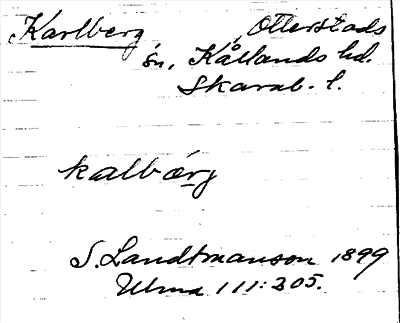 Karlberg, Otterstads
sn, Kållands hd.
Skarab. l.
kalbærg
S. Landtmanson 1899
Ulma 111:205.